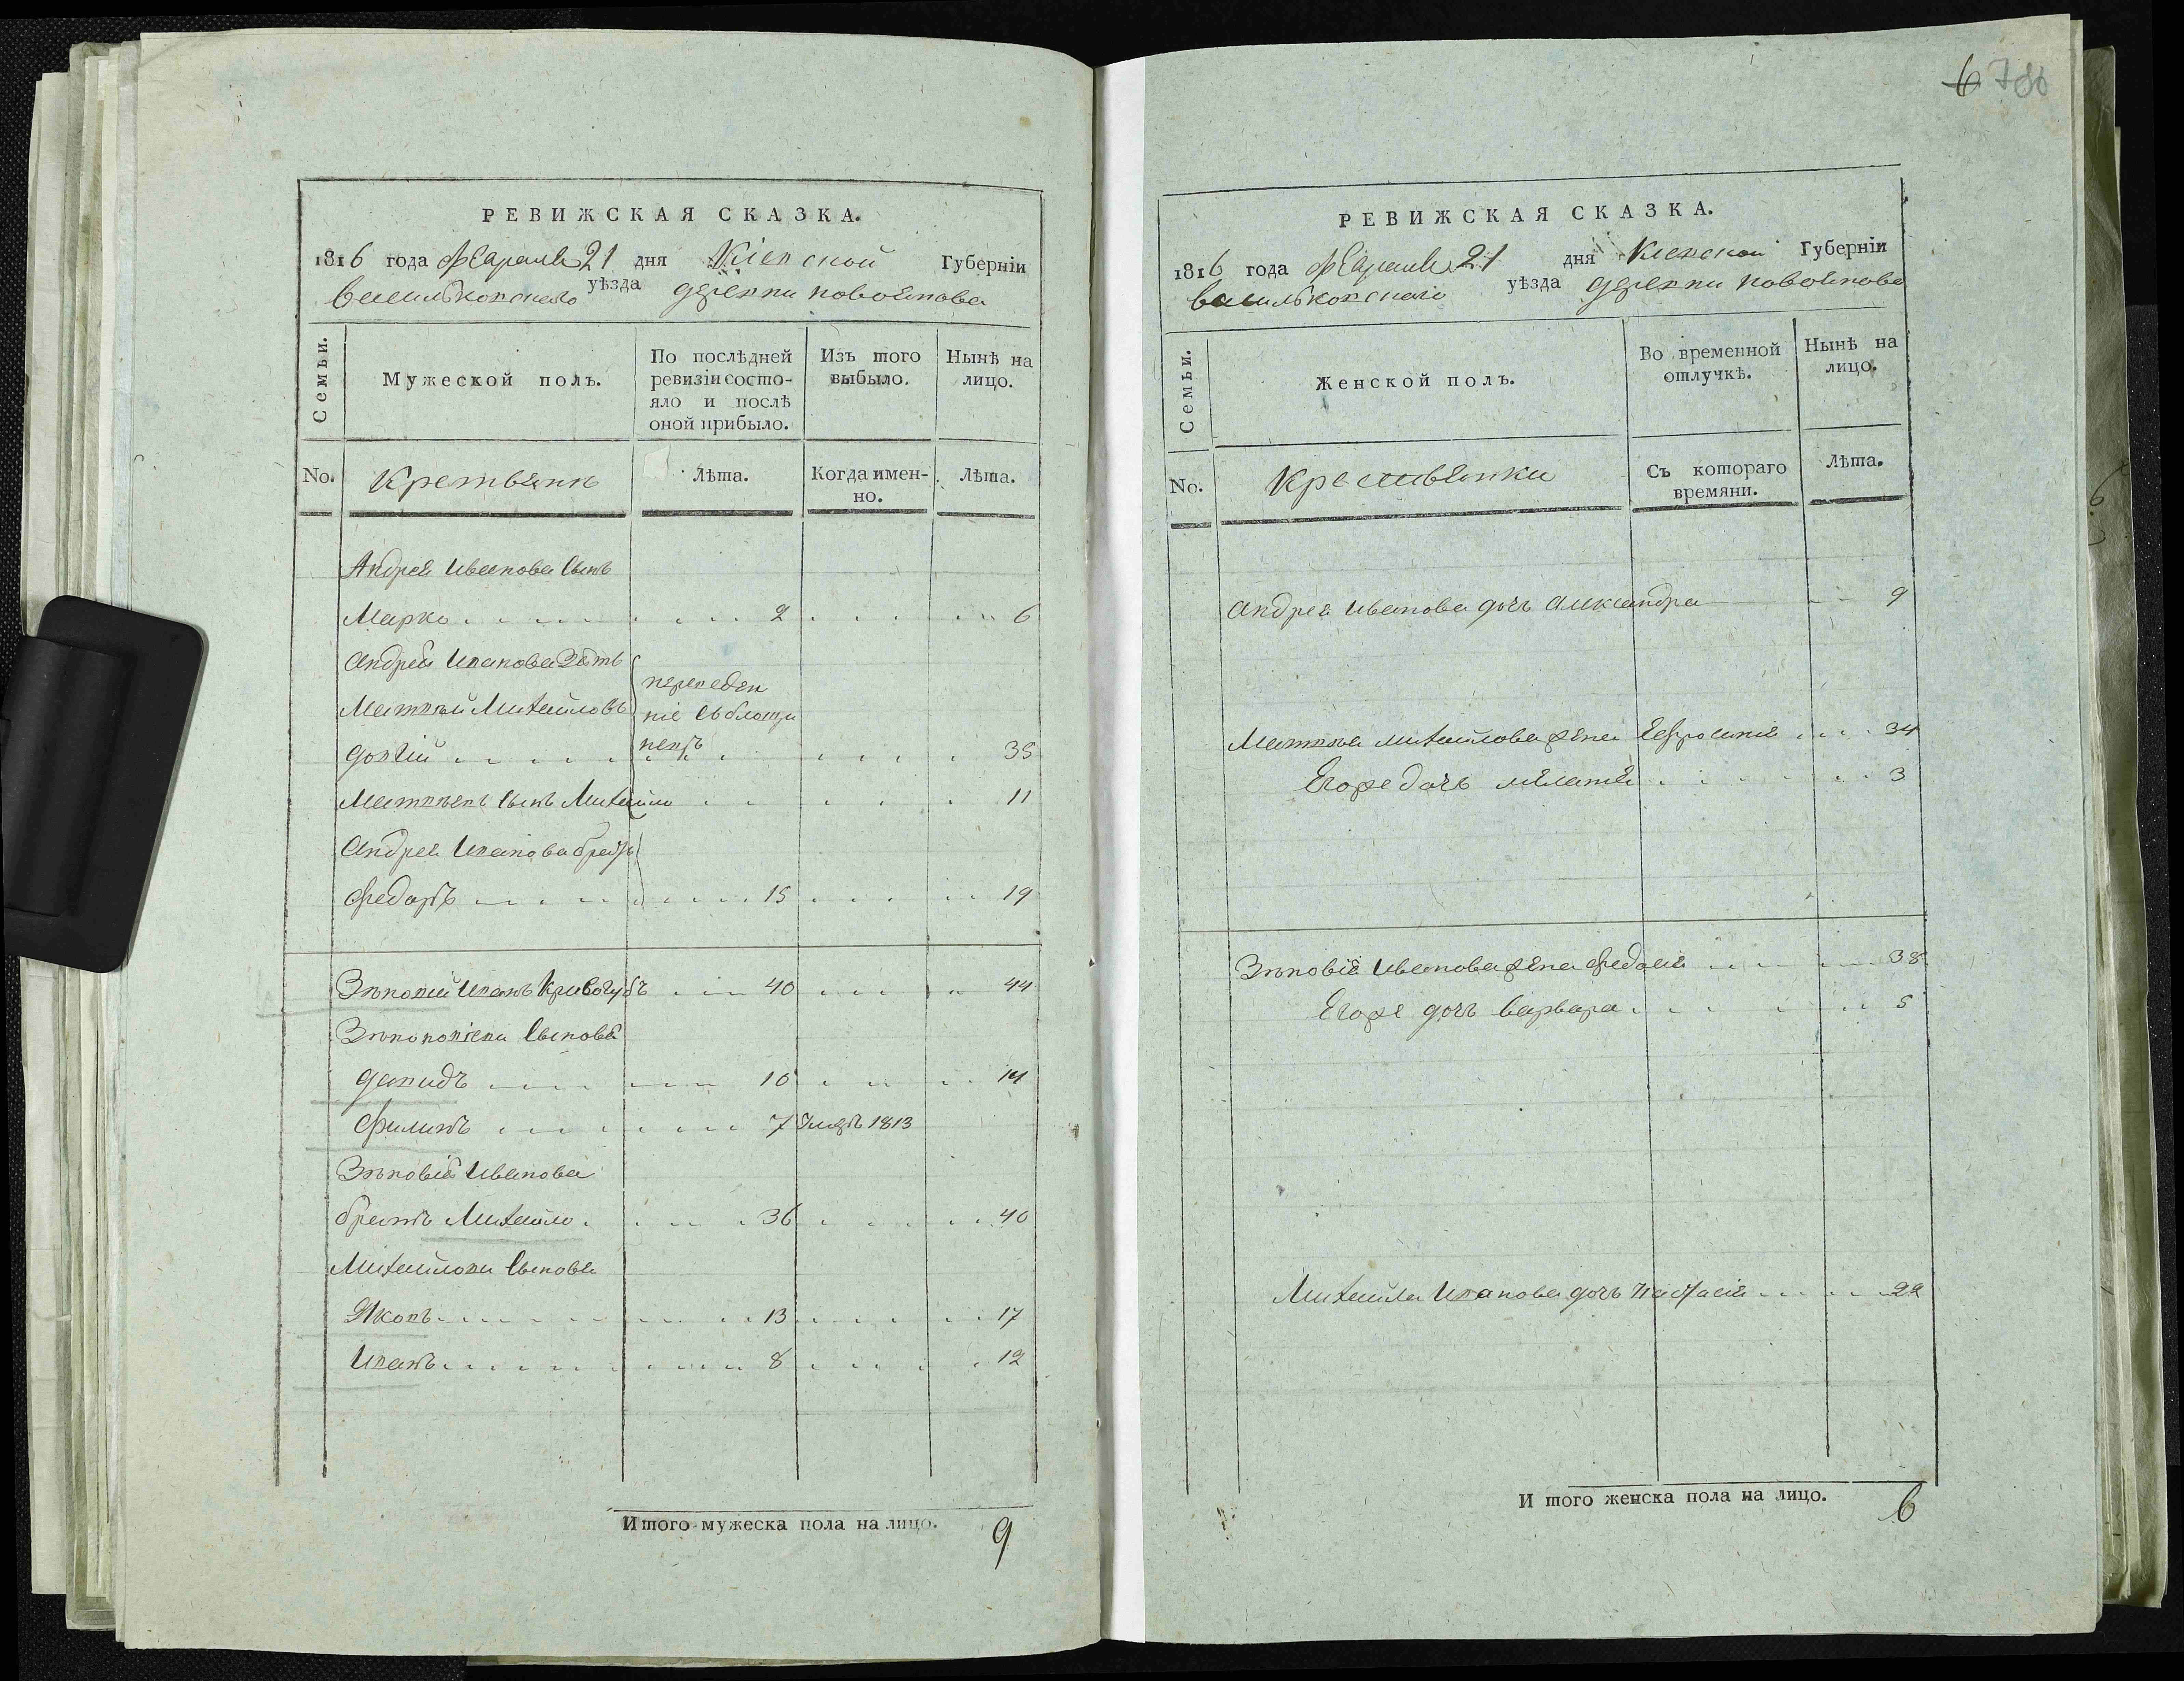 РЕВИЖСКАЯ СКАЗКА.
1816 года февраля 21 дня Кіевской Губерніи
васильковского уѣзда деревни
Семьи.
Мужеской полъ.
По послѣдней ревизіи состояло и послѣ оной прибыло.
Изъ того выбыло.
Нынѣ на лицо.
No.
Крестьянъ
Лѣта.
Когда именно.
Лѣта.
Андрея Иванова сынъ
Марко 2 6
Андрея Иванова зять
Матвѣй Михайловъ
переведен
ніе
35
Матвѣевъ сынъ Михайло 11
Андрея Иванова братъ
Федоръ 15 19
Зѣновій Иванъ Кривогубъ 40 44
сыновья
Давидъ 10 14
Филипъ 7 умре 1813
Зѣновія Иванова
братъ Михайло 36 40
Михайлови сыновья
Яковъ 13 17
Иванъ 8 12
Итого мужеска пола на лицо. 9
6 780
РЕВИЖСКАЯ СКАЗКА.
1816 года февраля 21 дня Киевской Губерніи
васильковского уѣзда деревни
Семьи.
Женской полъ.
Во временной отлучкѣ.
Нынѣ на лицо.
No.
Крестьянки
Съ котораго времяни.
Лѣта.
Андрея Иванова дочь Александра 9
Матвѣя Михайлова жена Евфросиніе 34
Егоже дочь мелания 3
Зѣновія Иванова жена Федосія 38
Егоже дочь варвара 5
Михайла Иванова дочь Настасія 22
И того женска пола на лицо. 6